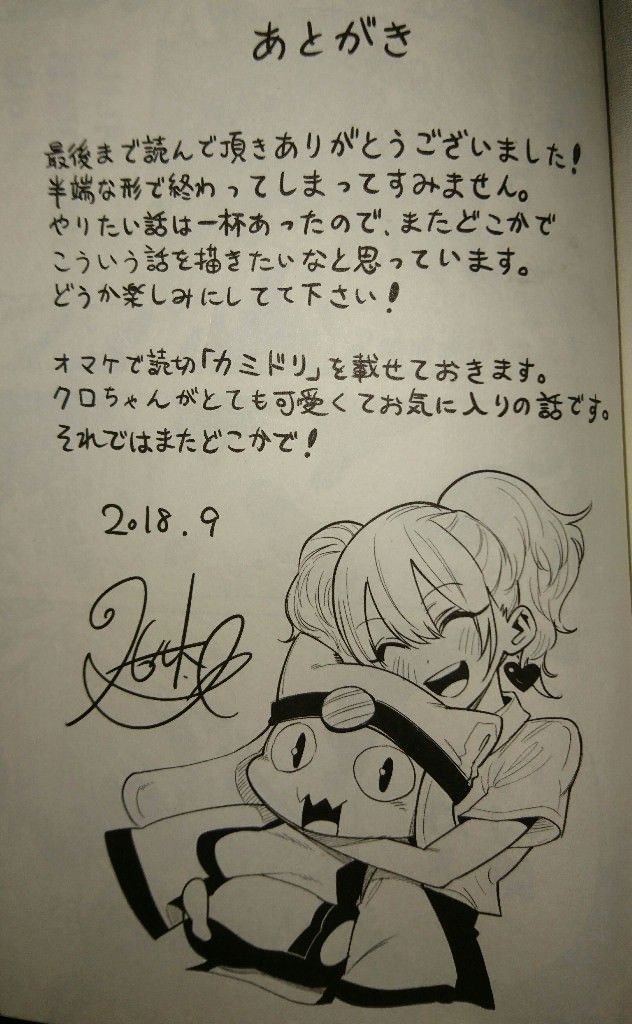 あとがき
最後まで読んで頂きありがとうございました!
半端な形で終わってしまってすみません。
やりたい話は一杯あったので、またどこかで
こういう話を描きたいなと思っています。
どうか楽しみにしてて下さい!
オマケで読切「カミドリ」を載せておきます。
クロちゃんがとても可愛くてお気に入りの話です。
それではまたどこかで!
2018.9